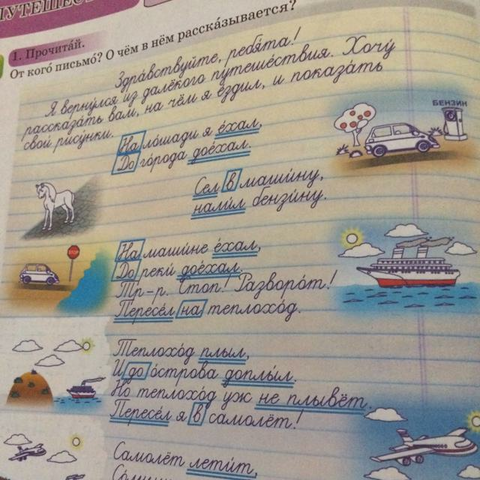 ПУТЕШЕС
1. Прочитáй.
От когó письмó? О чём в нём расскáзывается?
Здрáвствуйте, ребя́та!
Я верну́лся из далёкого путешéствия. Хочу́
рассказáть вам, на чём я éздил, и показáть
свои рису́нки.
На лóшади я éхал,
До гóрода доéхал.
Сел в маши́ну,
нали́л бензи́ну.
БЕНЗИН
На маши́не éхал,
До реки́ доéхал.
Тр-р. Стоп! Разворóт!
Пересéл на теплохóд.
Теплохóд плыл,
И до óстрова доплы́л.
Но теплохóд уж не плывёт.
Пересéл я в самолёт!
Самолёт лети́т,